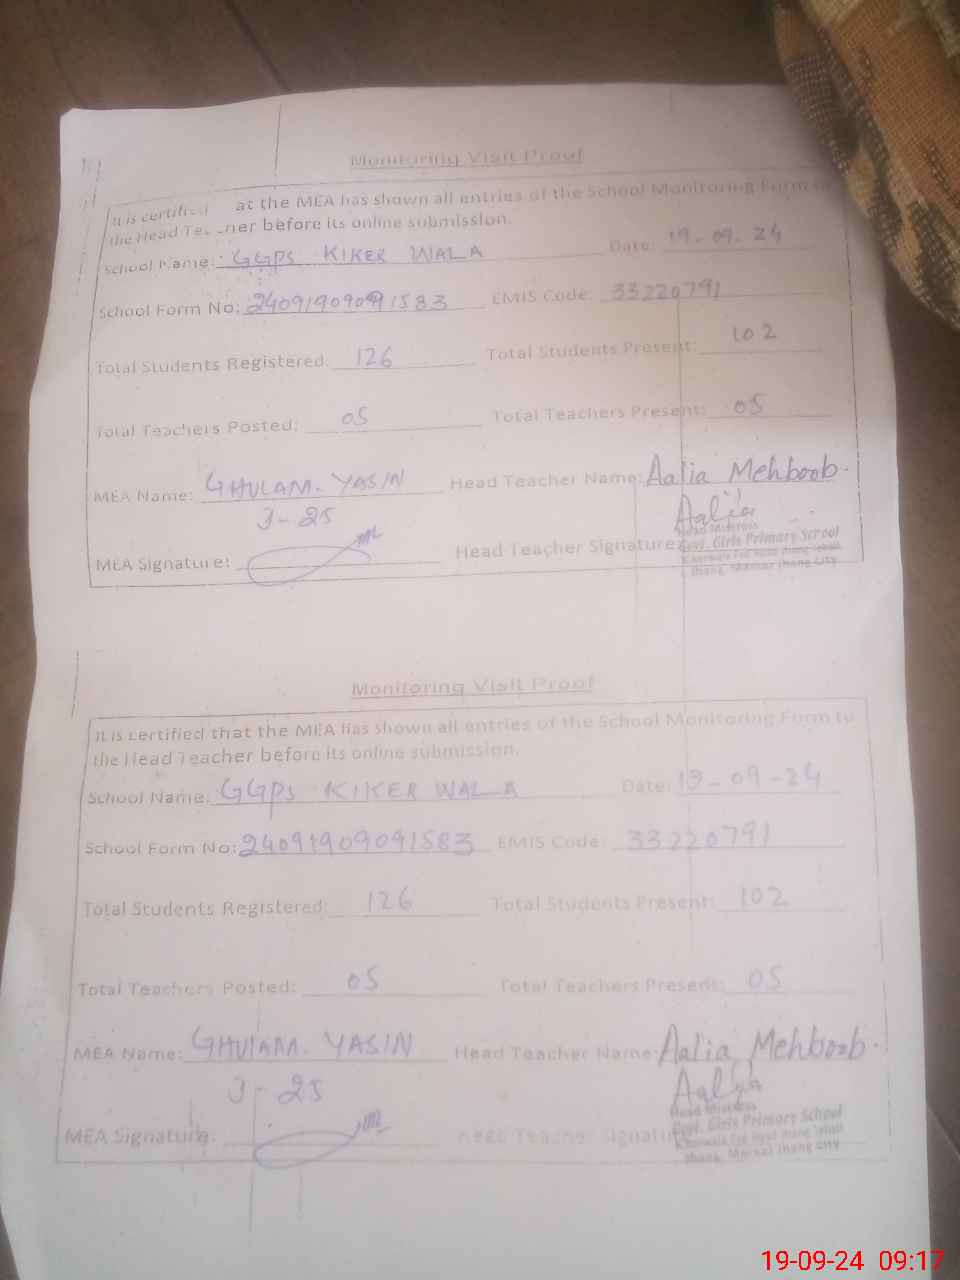 Monitoring Visit Proof
It is certified at the MEA has shown all entries of the School Monitoring Form to
the Head Teacher before its online submission.
School Name: GGPS KIKER WALA Date: 19-09-24
School Form No: 24091909091583 EMIS Code: 33220791
Total Students Registered: 126 Total Students Present: 102
Total Teachers Posted: 05 Total Teachers Present: 05
MEA Name: GHULAM. YASIN Head Teacher Name: Aalia Mehboob.
J-25 Aalia
MEA Signature: Head Teacher Signature
Head Mistress
Govt. Girls Primary School
Jhang, Markaz Jhang City
Monitoring Visit Proof
It is certified that the MEA has shown all entries of the School Monitoring Form to
the Head Teacher before its online submission.
School Name: GGPS KIKER WALA Date: 19-09-24
School Form No: 24091909091583 EMIS Code: 33220791
Total Students Registered: 126 Total Students Present: 102
Total Teachers Posted: 05 Total Teachers Present: 05
MEA Name: GHULAM. YASIN Head Teacher Name: Aalia Mehboob.
J-25 Aalia
MEA Signature: Head Teacher Signature
Head Mistress
Govt. Girls Primary School
Jhang, Markaz Jhang City
19-09-24 09:17